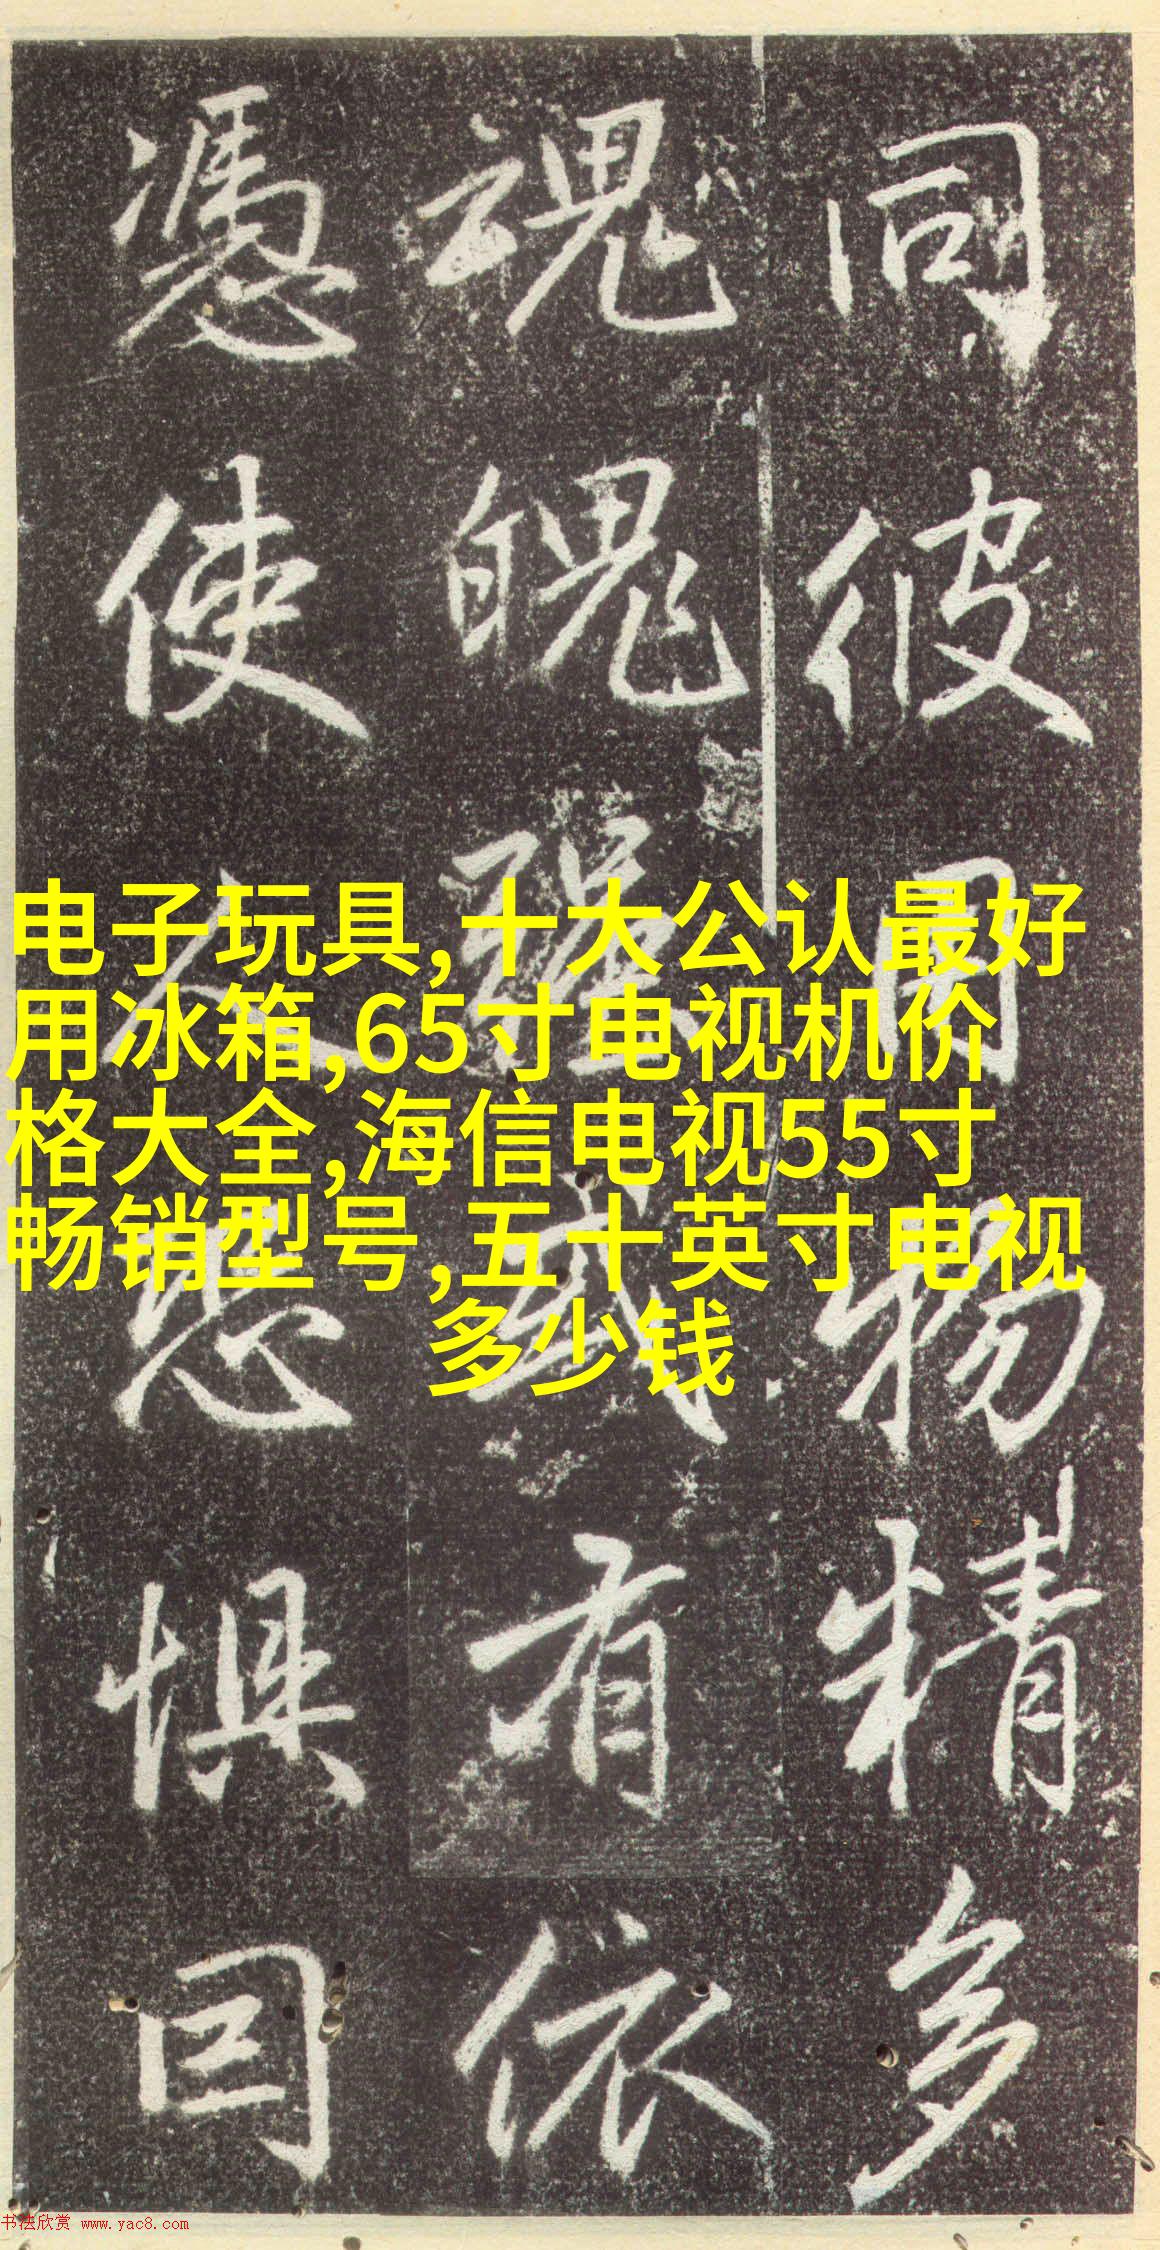 同彼用物精多
魂魄强或有依
憑使人恐惧囙
电子玩具,十大公认最好
用冰箱,65寸电视机价
格大全,海信电视55寸
畅销型号,五十英寸电视
多少钱
书法欣赏 www.yac8.com